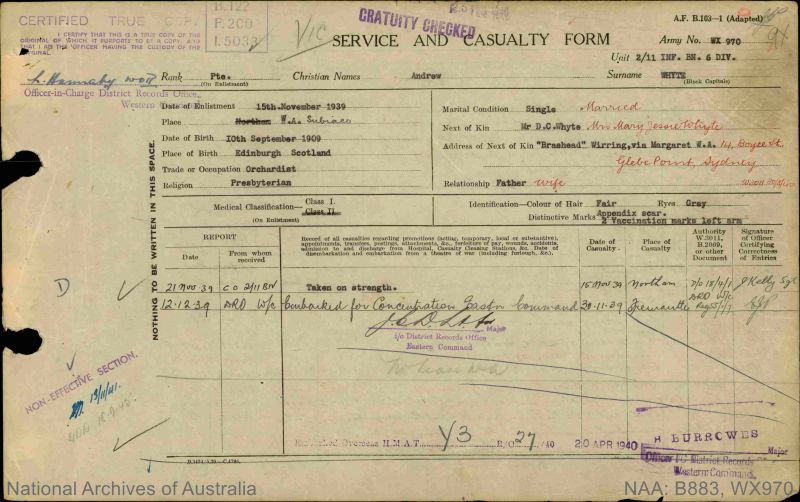 CERTIFIED TRUE COPY
I CERTIFY THAT THIS IS A TRUE COPY OF THE
ORIGINAL OF WHICH IT PURPORTS TO BE A COPY, AND
THAT I AM THE OFFICER HAVING THE CUSTODY OF THE
ORIGINAL.
Officer-in-Charge District Records Office,
Western
B.122
B.200
1.5033
V/C
GRATUITY CHECKED
A.F. B.163—1 (Adapted)
SERVICE AND CASUALTY FORM
Army No. WX 970
Unit 2/11 INF. BN. 6 DIV.
Rank Pte. Christian Names Andrew Surname WHYTE
(On Enlistment) (Block Capitals)
NOTHING TO BE WRITTEN IN THIS SPACE.
Date of Enlistment 15th.November 1939
Place Northam W.A. Subiaco
Date of Birth 10th September 1909
Place Edinburgh Scotland
Trade or Occupation Orchardist
Religion Presbyterian
Marital Condition Single Married
Next of Kin Mr D.C.Whyte Mrs Mary Jessie Whyte
Address of Next of Kin "Braehead" Wirring,via Margaret W.A. 14, Boyce St.
Glebe Point, Sydney
Relationship Father Wife
Medical Classification— Class I.
(On Enlistment) Class II.
Identification—Colour of Hair Fair Eyes Gray
Distinctive Marks Appendix scar.
2 Vaccination marks left arm
REPORT
Date
From whom received
Record of all casualties regarding promotions (acting, temporary, local or substantive),
appointments, transfers, postings, attachments, &c., forfeiture of pay, wounds, accidents,
admission to and discharge from Hospital, Casualty Clearing Stations, &c. Date of
disembarkation and embarkation from a theatre of war (including furlough, &c.)
Date of Casualty
Place of Casualty
Authority W.3011, B.2069, or other Document
Signature of Officer Certifying Correctness of Entries
21 Nov 39 C O 2/11 BN Taken on strength. 15 Nov 39 Northam J Kelly Sgt
12.12.39 ARD W/c Embarked for Concentration Eastn Command 30.11.39 Fremantle ARD W/c
Major
i/c District Records Office
Eastern Command
D
NON-EFFECTIVE SECTION.
13/11/41.
Embarked Overseas H.M.A.T. Y3 R/O 27/40 20 APR 1940
H BURROWES
Major
Officer I/C District Records
Western Command
National Archives of Australia
NAA: B883, WX970